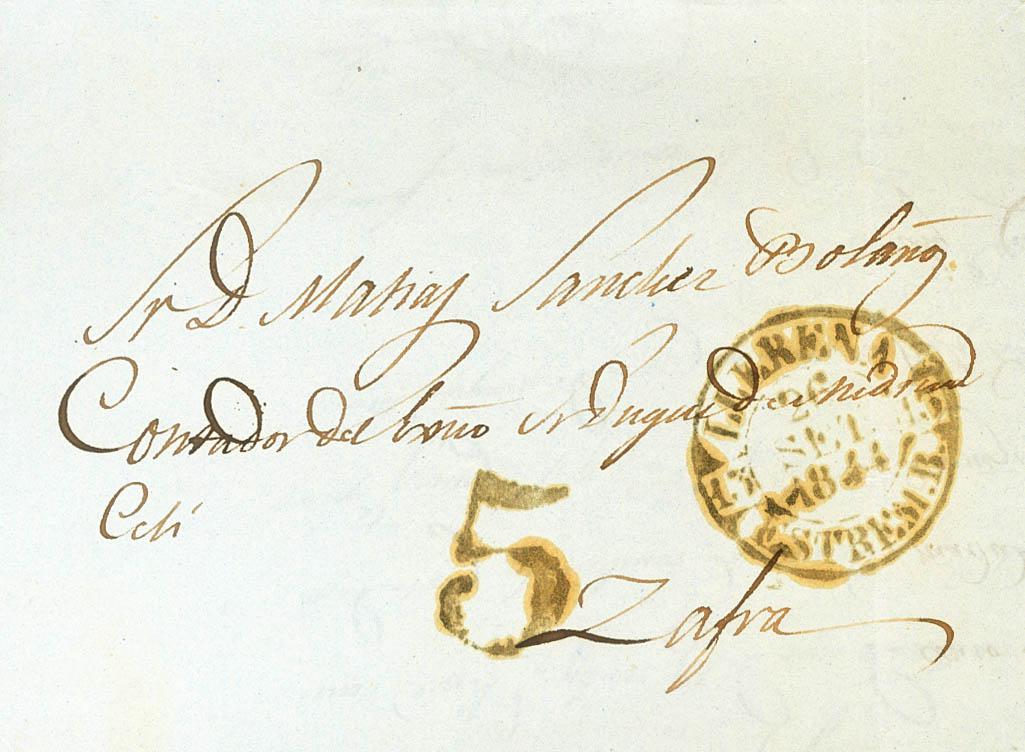 Sr D. Matias Sanchez Bolaños
Contador del Exmo Sr Duque de Medina
Celi
5
Zafra
LLERENA
26
SET
1844
ESTREM. B.